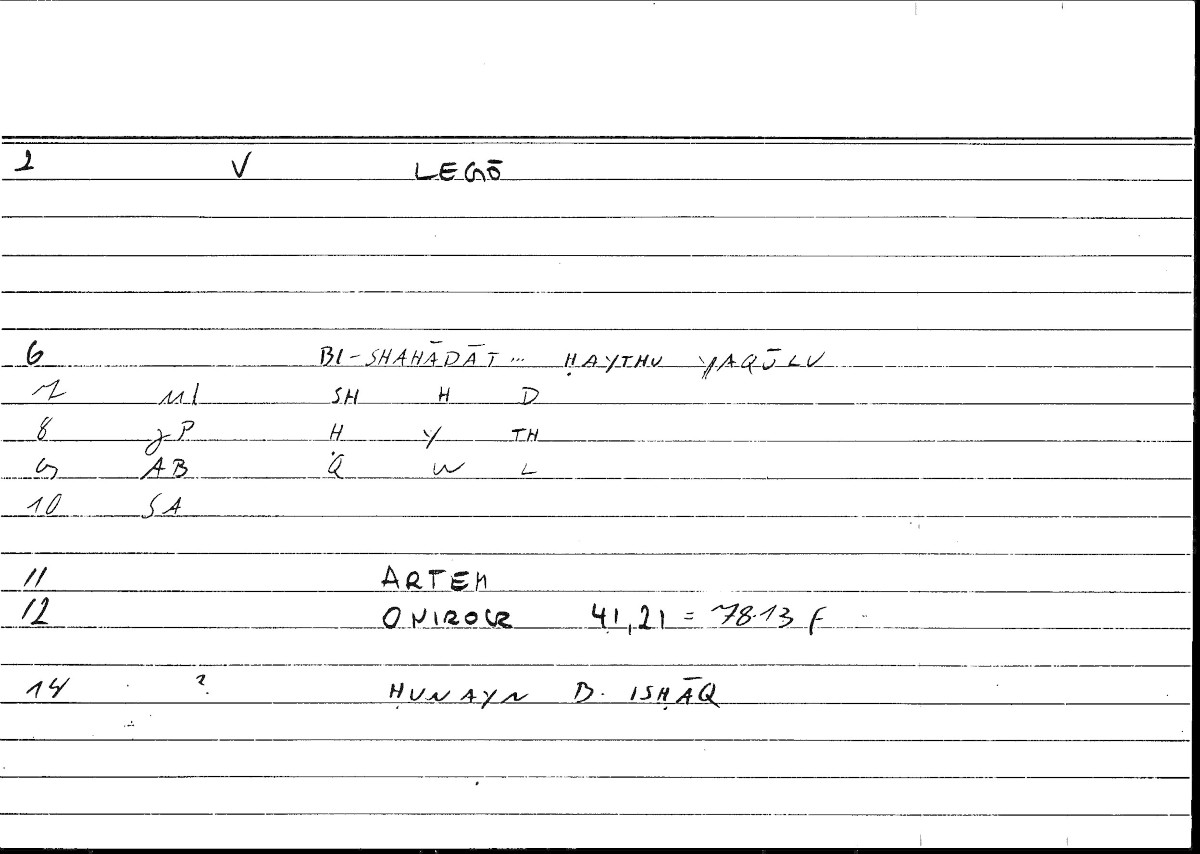 2 V LEGŌ
6 BI-SHAHĀDĀT... ḤAYTHU YAQŪLU
7 ml SH H D
8 gP Ḥ Y TH
9 AB Q W L
10 SA
11 ARTEM
12 ONIROCR 41,21 = 78.13 f
14 ? ḤUNAYN B. ISḤĀQ